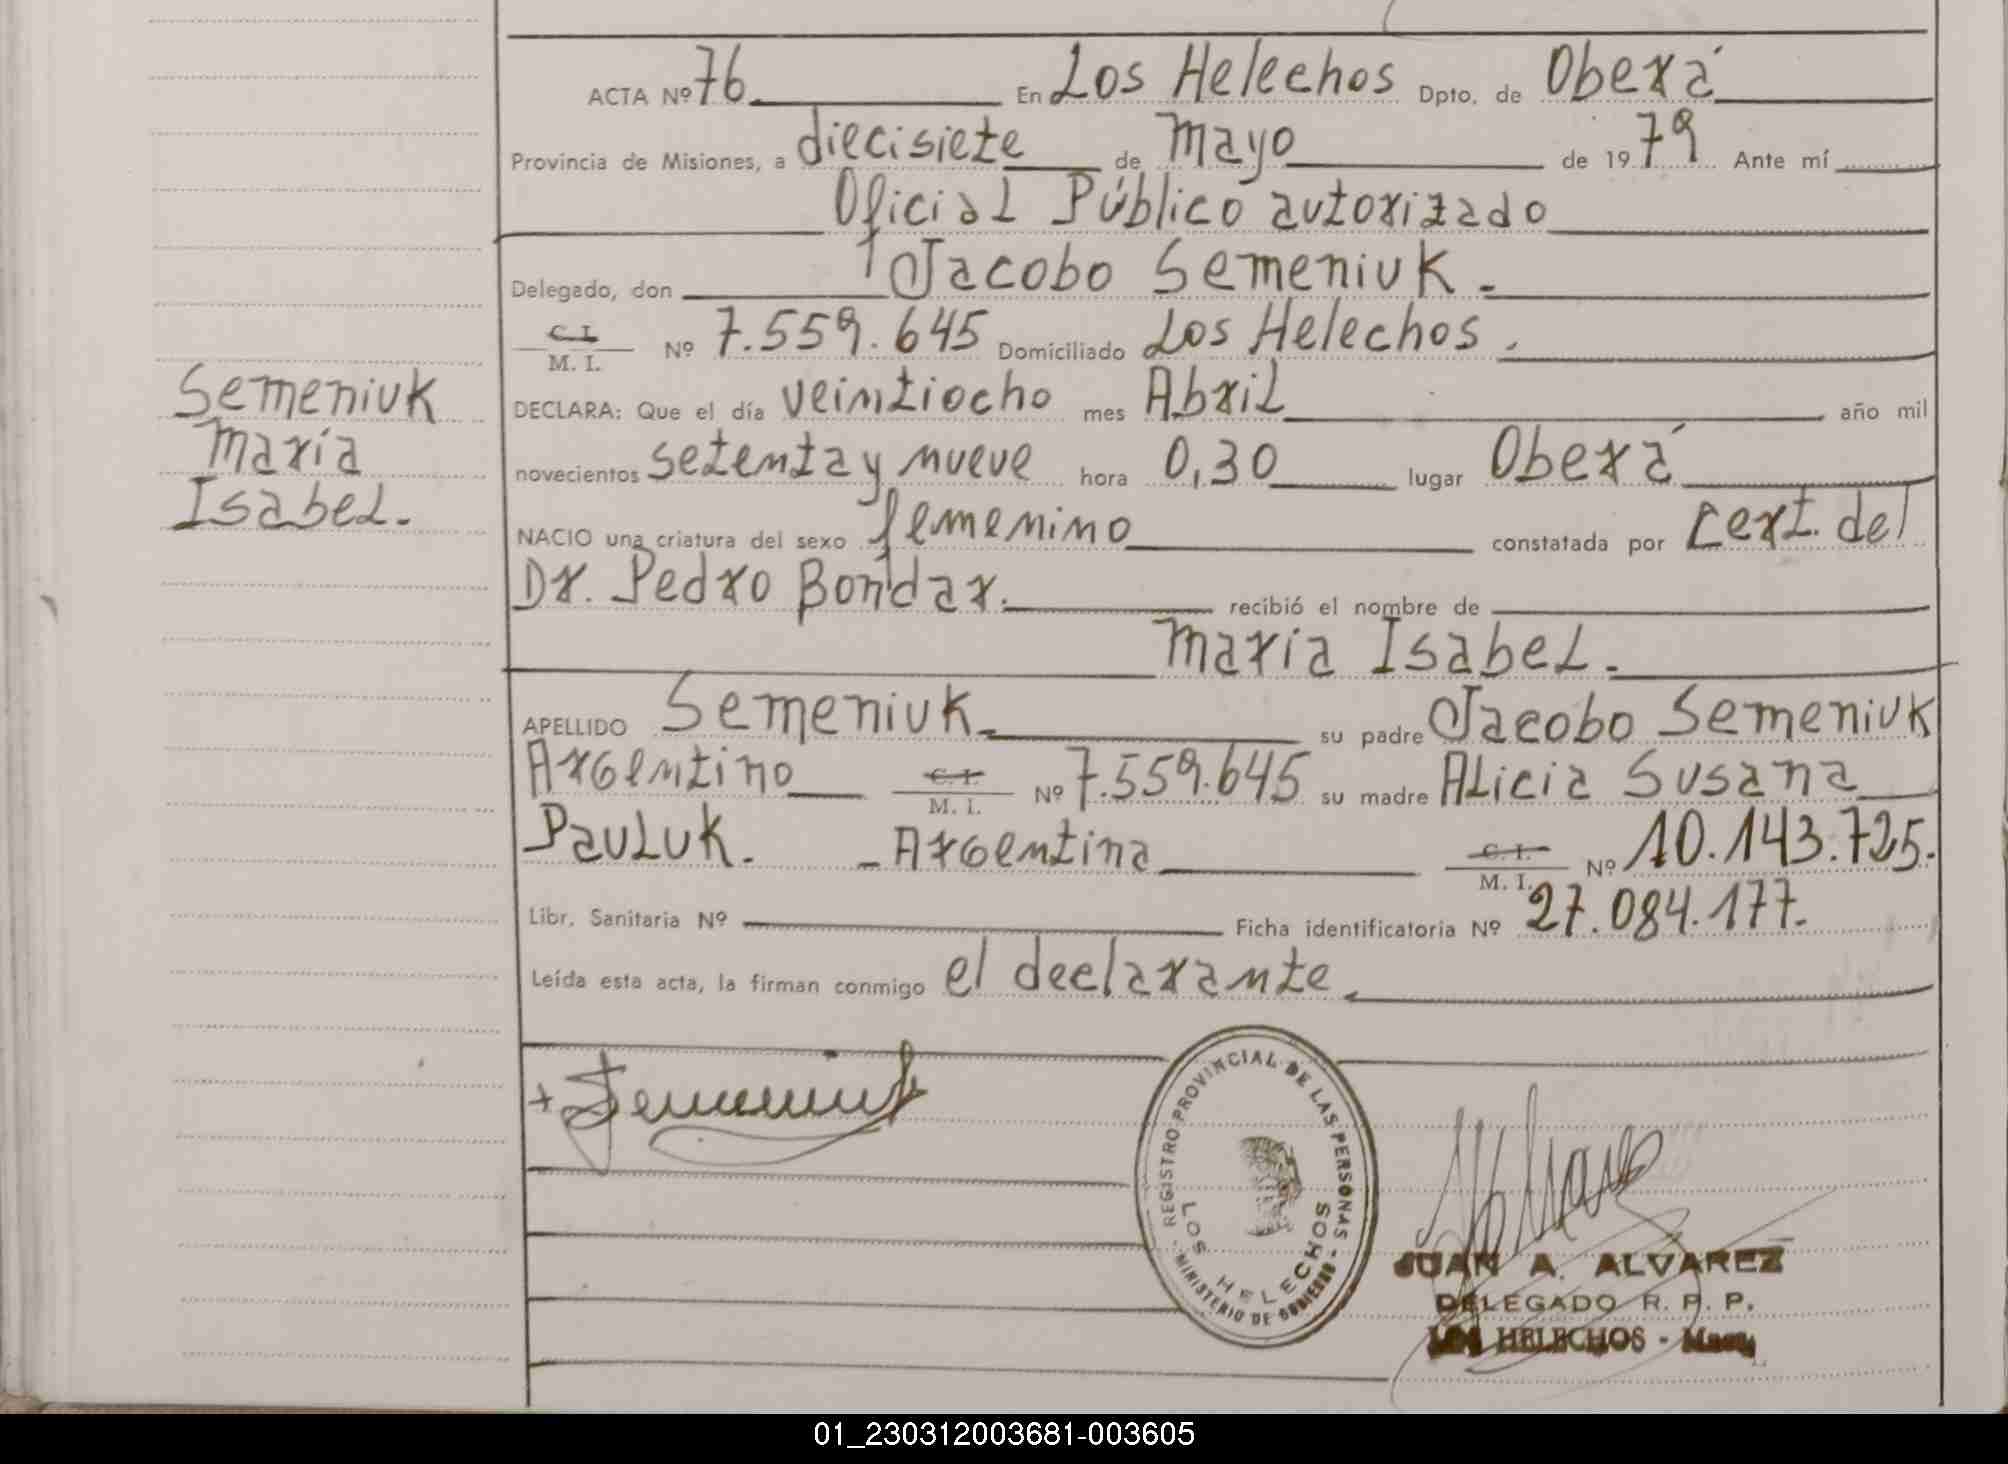 ACTA Nº 76 En Los Helechos Dpto, de Oberá
Provincia de Misiones, a diecisiete de Mayo de 1979 Ante mí
Oficial Público autorizado
Delegado, don Jacobo Semeniuk.
C. I. / M. I. Nº 7.559.645 Domiciliado Los Helechos.
DECLARA: Que el día veintiocho mes Abril año mil
novecientos setenta y nueve hora 0,30 lugar Oberá
NACIO una criatura del sexo femenino constatada por Cert. del
Dr. Pedro Bondar. recibió el nombre de
María Isabel.
APELLIDO Semeniuk su padre Jacobo Semeniuk
Argentino C. I. / M. I. Nº 7.559.645 su madre Alicia Susana
Pauluk. - Argentina C. I. / M. I. Nº 10.143.725.
Libr. Sanitaria Nº Ficha identificatoria Nº 27.084.177.
Leída esta acta, la firman conmigo el declarante.
Semeniuk
María
Isabel.
Semeniuk
REGISTRO PROVINCIAL DE LAS PERSONAS
- MINISTERIO DE GOBIERNO -
LOS HELECHOS
JUAN A. ALVAREZ
DELEGADO R. P. P.
LOS HELECHOS -
01_230312003681-003605